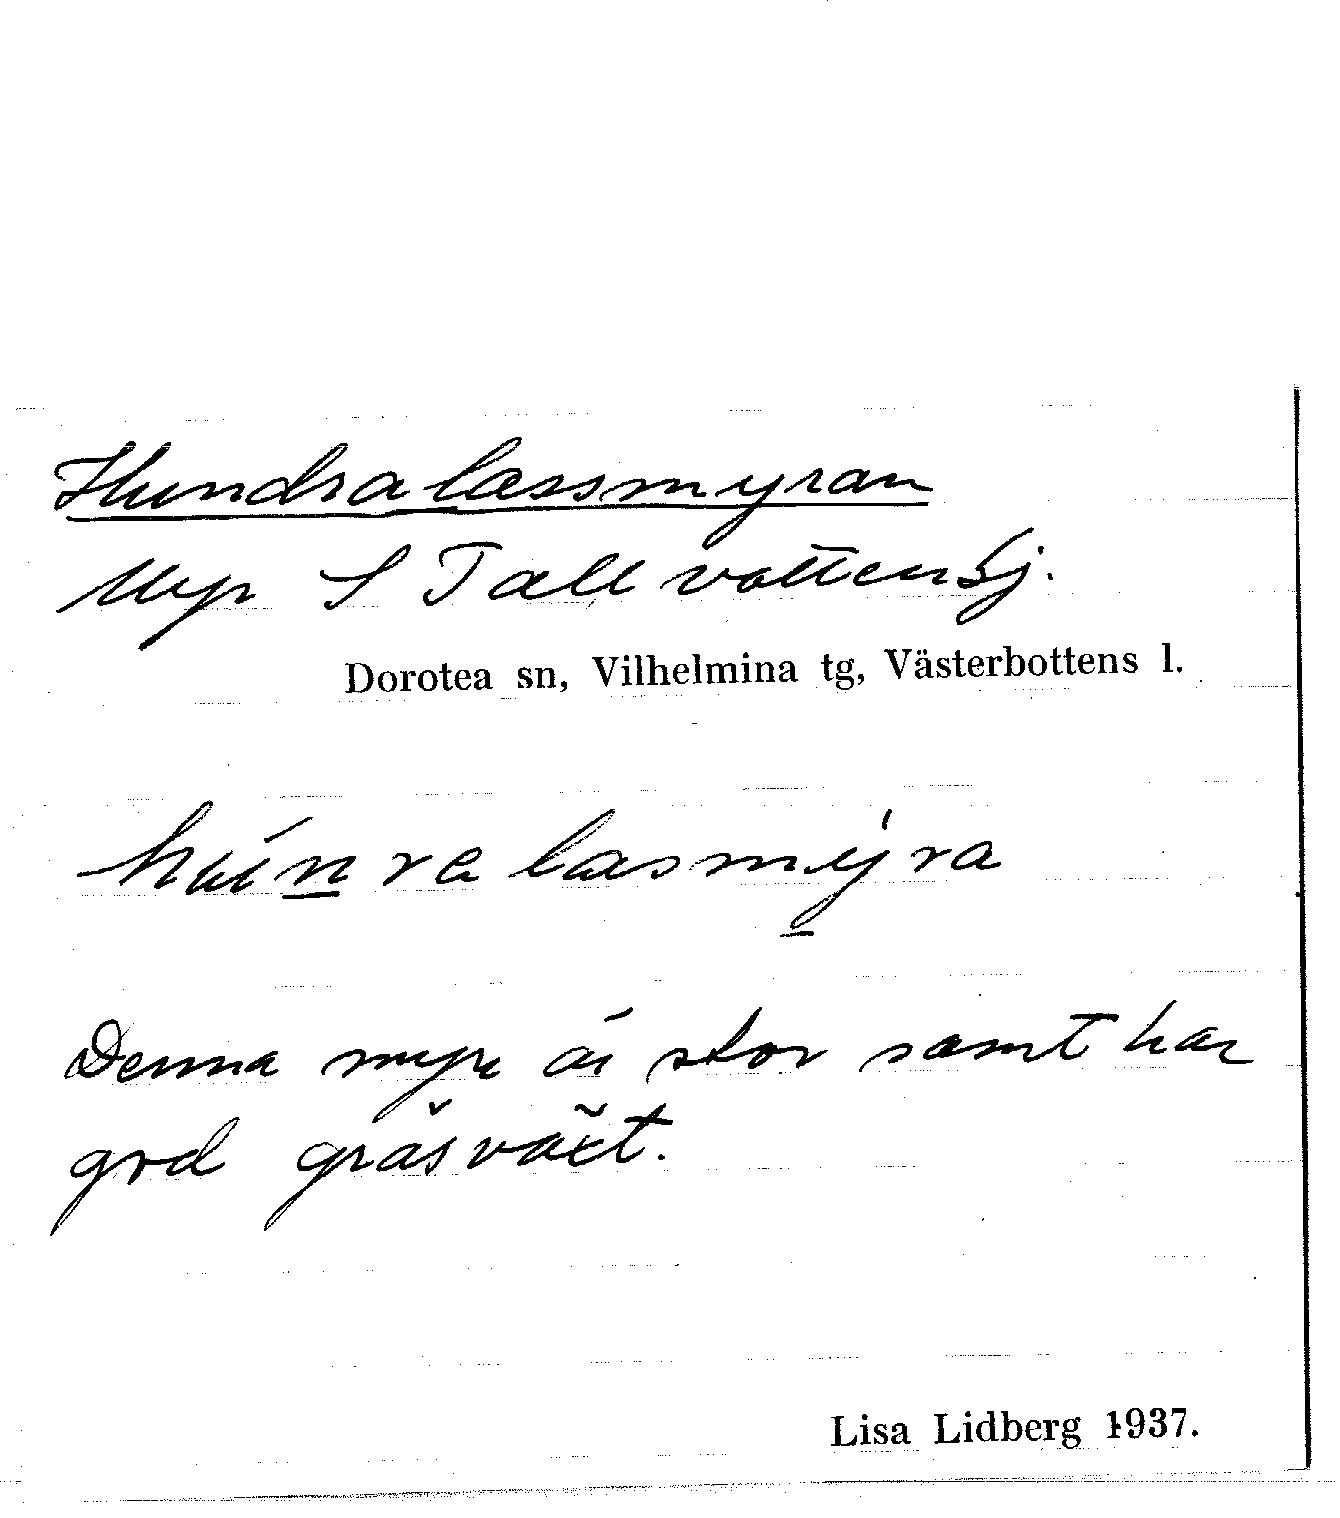 Hundralassmyran
Myr S Tallvattensj.
Dorotea sn, Vilhelmina tg, Västerbottens l.
húnralasmýra
Denna myr är stor samt har
god gräsväxt.
Lisa Lidberg 1937.